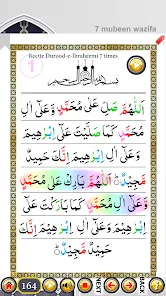 7 mubeen wazifa
Recite Durood-e-Ibraheemi 7 times
1
بِسْمِ اللّٰهِ الرَّحْمٰنِ الرَّحِيْمِ
اَللّٰهُمَّ صَلِّ عَلٰى مُحَمَّدٍ
وَّعَلٰٓى اٰلِ مُحَمَّدٍ كَمَا
صَلَّيْتَ عَلٰٓى اِبْرٰهِيْمَ
وَعَلٰٓى اٰلِ اِبْرٰهِيْمَ اِنَّكَ حَمِيْدٌ
مَّجِيْدٌ اَللّٰهُمَّ بَارِكْ عَلٰى مُحَمَّدٍ
وَّعَلٰٓى اٰلِ مُحَمَّدٍ كَمَا بَارَكْتَ عَلٰٓى
اِبْرٰهِيْمَ وَعَلٰٓى اٰلِ اِبْرٰهِيْمَ اِنَّكَ
حَمِيْدٌ مَّجِيْدٌ
164
NEXT
BACK